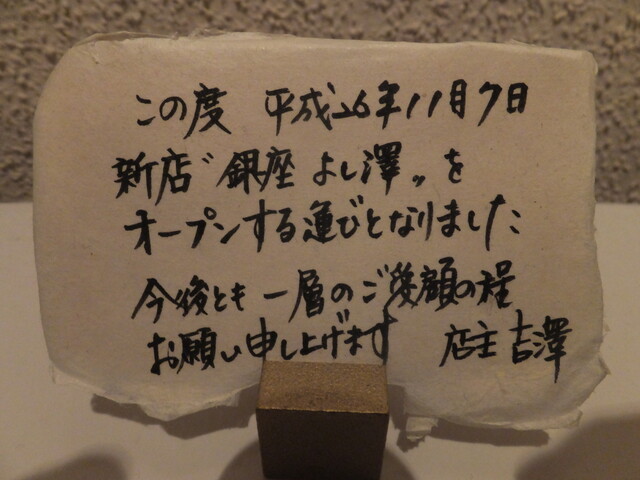 この度 平成26年11月7日
新店〝銀座 よし澤〟を
オープンする運びとなりました
今後とも 一層のご愛顧の程
お願い申し上げます 店主 吉澤